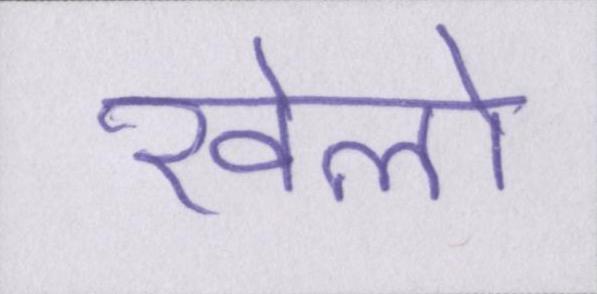 खेलो